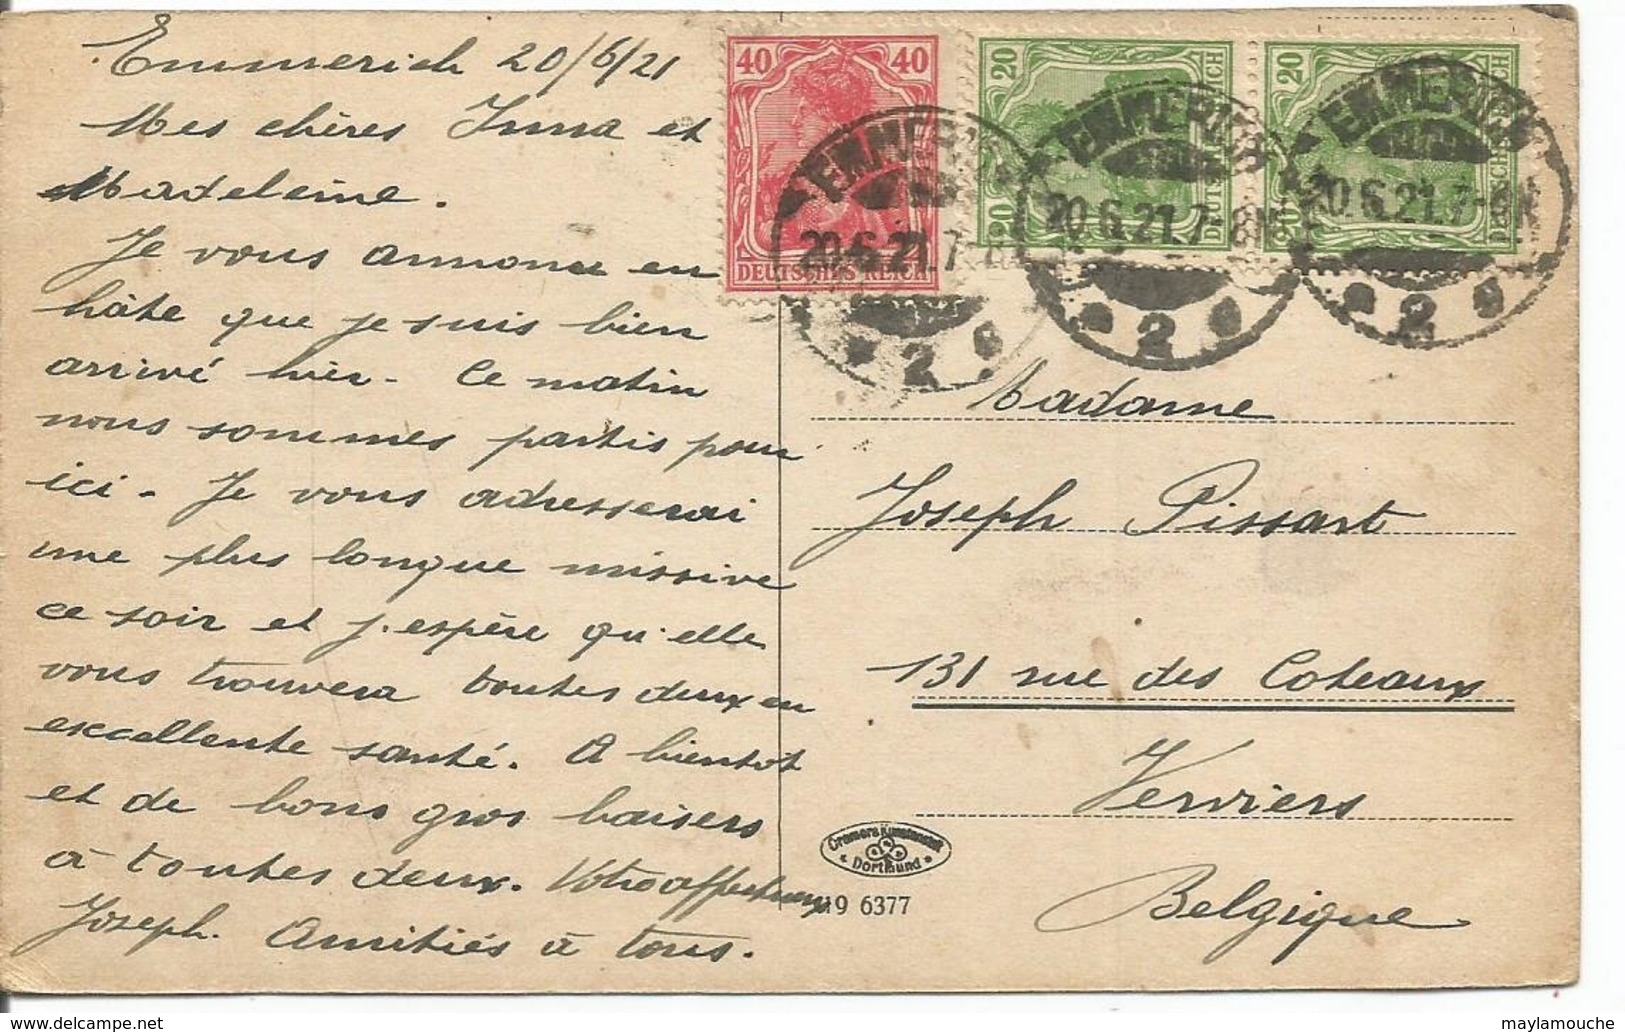 Emmerich 20/6/21
Mes chères Irma et
Madeleine.
Je vous annonce en
hâte que je suis bien
arrivé hier. Ce matin
nous sommes partis pour
ici. Je vous adresserai
une plus longue missive
ce soir et j'espère qu'elle
vous trouvera toutes deux en
excellente santé. A bientôt
et de bons gros baisers
à toutes deux. Votre affectueux
Joseph. Amitiés à tous.
40 40
DEUTSCHES REICH
20
20
DEUTSCHES REICH
20
20
DEUTSCHES REICH
EMMERICH
20.6.21.7-
2
EMMERICH
20.6.21.7-8N
2
EMMERICH
20.6.21.7-8N
2
Madame
Joseph Pissart
131 rue des Coteaux
Verviers
Belgique
Cramers Kunstanstalt
Dortmund
19 6377
www.delcampe.net
maylamouche